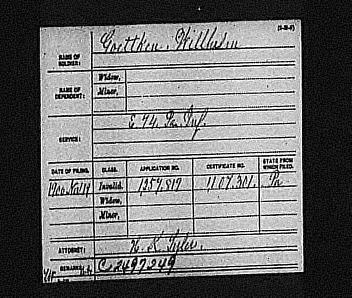 (3-M-F)
NAME OF SOLDIER: Goettken, Wilhelm
NAME OF DEPENDENT: Widow,
Minor,
SERVICE: E 74 Pa Inf.
DATE OF FILING. CLASS. APPLICATION NO. CERTIFICATE NO. STATE FROM WHICH FILED.
1900 Invalid, 1257,819 1107,301 Pa
Widow,
Minor,
ATTORNEY:
REMARKS: C 2497249